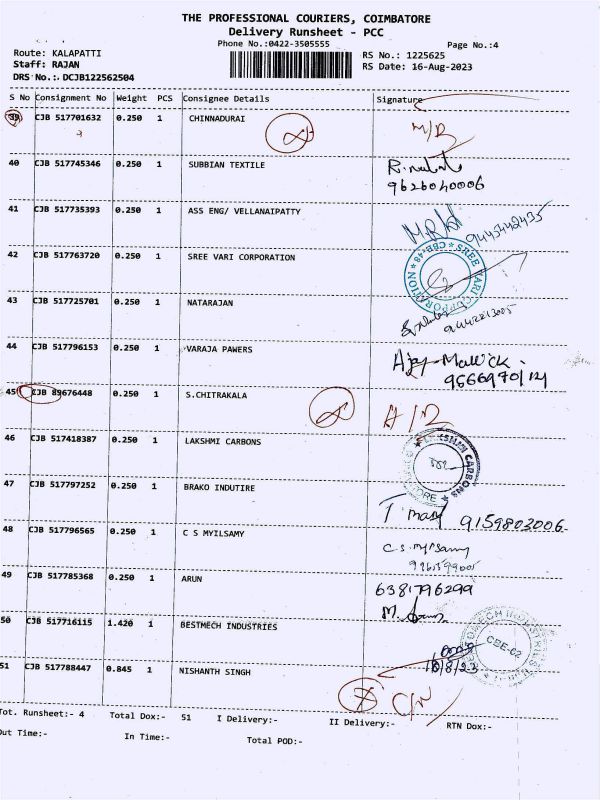 THE PROFESSIONAL COURIERS, COIMBATORE
Delivery Runsheet - PCC
Phone No.:0422-3505555
Page No.:4
Route: KALAPATTI
RS No.: 1225625
Staff: RAJAN
RS Date: 16-Aug-2023
DRS No.: DCJB122562504
S No Consignment No Weight PCS Consignee Details Signature
39 CJB 517701632 0.250 1 CHINNADURAI
40 CJB 517745346 0.250 1 SUBBIAN TEXTILE
9626040006
41 CJB 517735393 0.250 1 ASS ENG/ VELLANAIPATTY
9443442435
42 CJB 517763720 0.250 1 SREE VARI CORPORATION
SREE VARI CORPORATION CBE-48
43 CJB 517725701 0.250 1 NATARAJAN
44 CJB 517796153 0.250 1 VARAJA PAWERS
Ajay Mallick
45 CJB 89676448 0.250 1 S.CHITRAKALA
46 CJB 517418387 0.250 1 LAKSHMI CARBONS
CARBONS
47 CJB 517797252 0.250 1 BRAKO INDUTIRE
9159803006
48 CJB 517796565 0.250 1 C S MYILSAMY
C.S. Mylsamy
49 CJB 517785368 0.250 1 ARUN
6381796299
50 CJB 517716115 1.420 1 BESTMECH INDUSTRIES
CBE-62
51 CJB 517788447 0.845 1 NISHANTH SINGH
Tot. Runsheet:- 4 Total Dox:- 51 I Delivery:- II Delivery:- RTN Dox:-
Out Time:- In Time:- Total POD:-